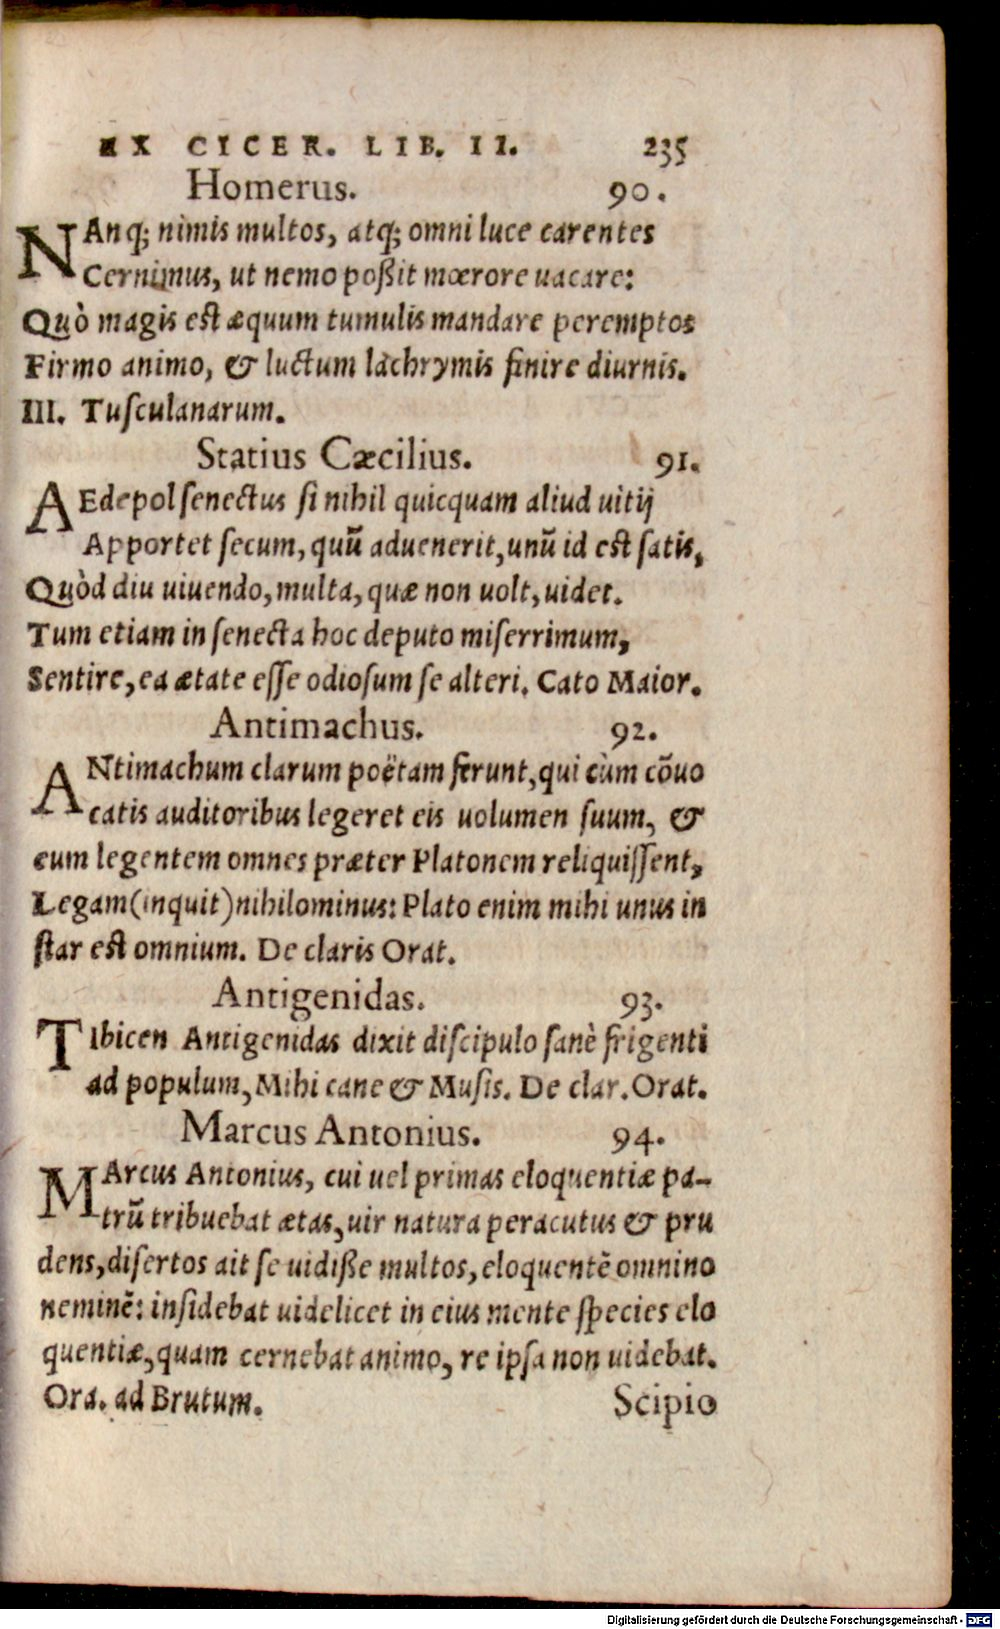 EX CICER. LIB. II. 235
Homerus. 90.
NAnq; nimis multos, atq; omni luce carentes
Cernimus, ut nemo poßit mœrore uacare:
Quò magis est æquum tumulis mandare peremptos
Firmo animo, & luctum lachrymis finire diurnis.
III. Tusculanarum.
Statius Cæcilius. 91.
AEdepol senectus si nihil quicquam aliud uitij
Apportet secum, quũ aduenerit, unũ id est satis,
Quòd diu uiuendo, multa, quæ non uolt, uidet.
Tum etiam in senecta hoc deputo miserrimum,
Sentire, ea ætate esse odiosum se alteri. Cato Maior.
Antimachus. 92.
ANtimachum clarum poëtam ferunt, qui cùm cõuo
catis auditoribus legeret eis uolumen suum, &
eum legentem omnes præter Platonem reliquissent,
Legam (inquit) nihilominus: Plato enim mihi unus in
star est omnium. De claris Orat.
Antigenidas. 93.
TIbicen Antigenidas dixit discipulo sanè frigenti
ad populum, Mihi cane & Musis. De clar. Orat.
Marcus Antonius. 94.
MArcus Antonius, cui uel primas eloquentiæ pa-
trũ tribuebat ætas, uir natura peracutus & pru
dens, disertos ait se uidiße multos, eloquentẽ omnino
neminẽ: insidebat uidelicet in eius mente species elo
quentiæ, quam cernebat animo, re ipsa non uidebat.
Ora. ad Brutum. Scipio
Digitalisierung gefördert durch die Deutsche Forschungsgemeinschaft - DFG